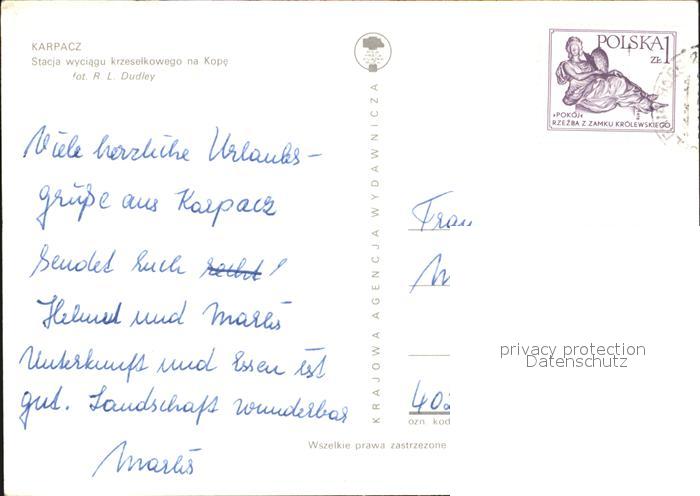 KARPACZ
Stacja wyciągu krzesełkowego na Kopę
fot. R. L. Dudley
POLSKA 1
ZŁ
»POKÓJ«
RZEŹBA Z ZAMKU KRÓLEWSKIEGO
Viele herzliche Urlaubs-
grüße aus Karpacz
Sendet Euch recht!
Helmut und Marlis
Unterkunft und Essen ist
gut. Landschaft wunderbar
Marlis
KRAJOWA AGENCJA WYDAWNICZA
Fran
402
ozn. kod
Wszelkie prawa zastrzeżone
privacy protection
Datenschutz